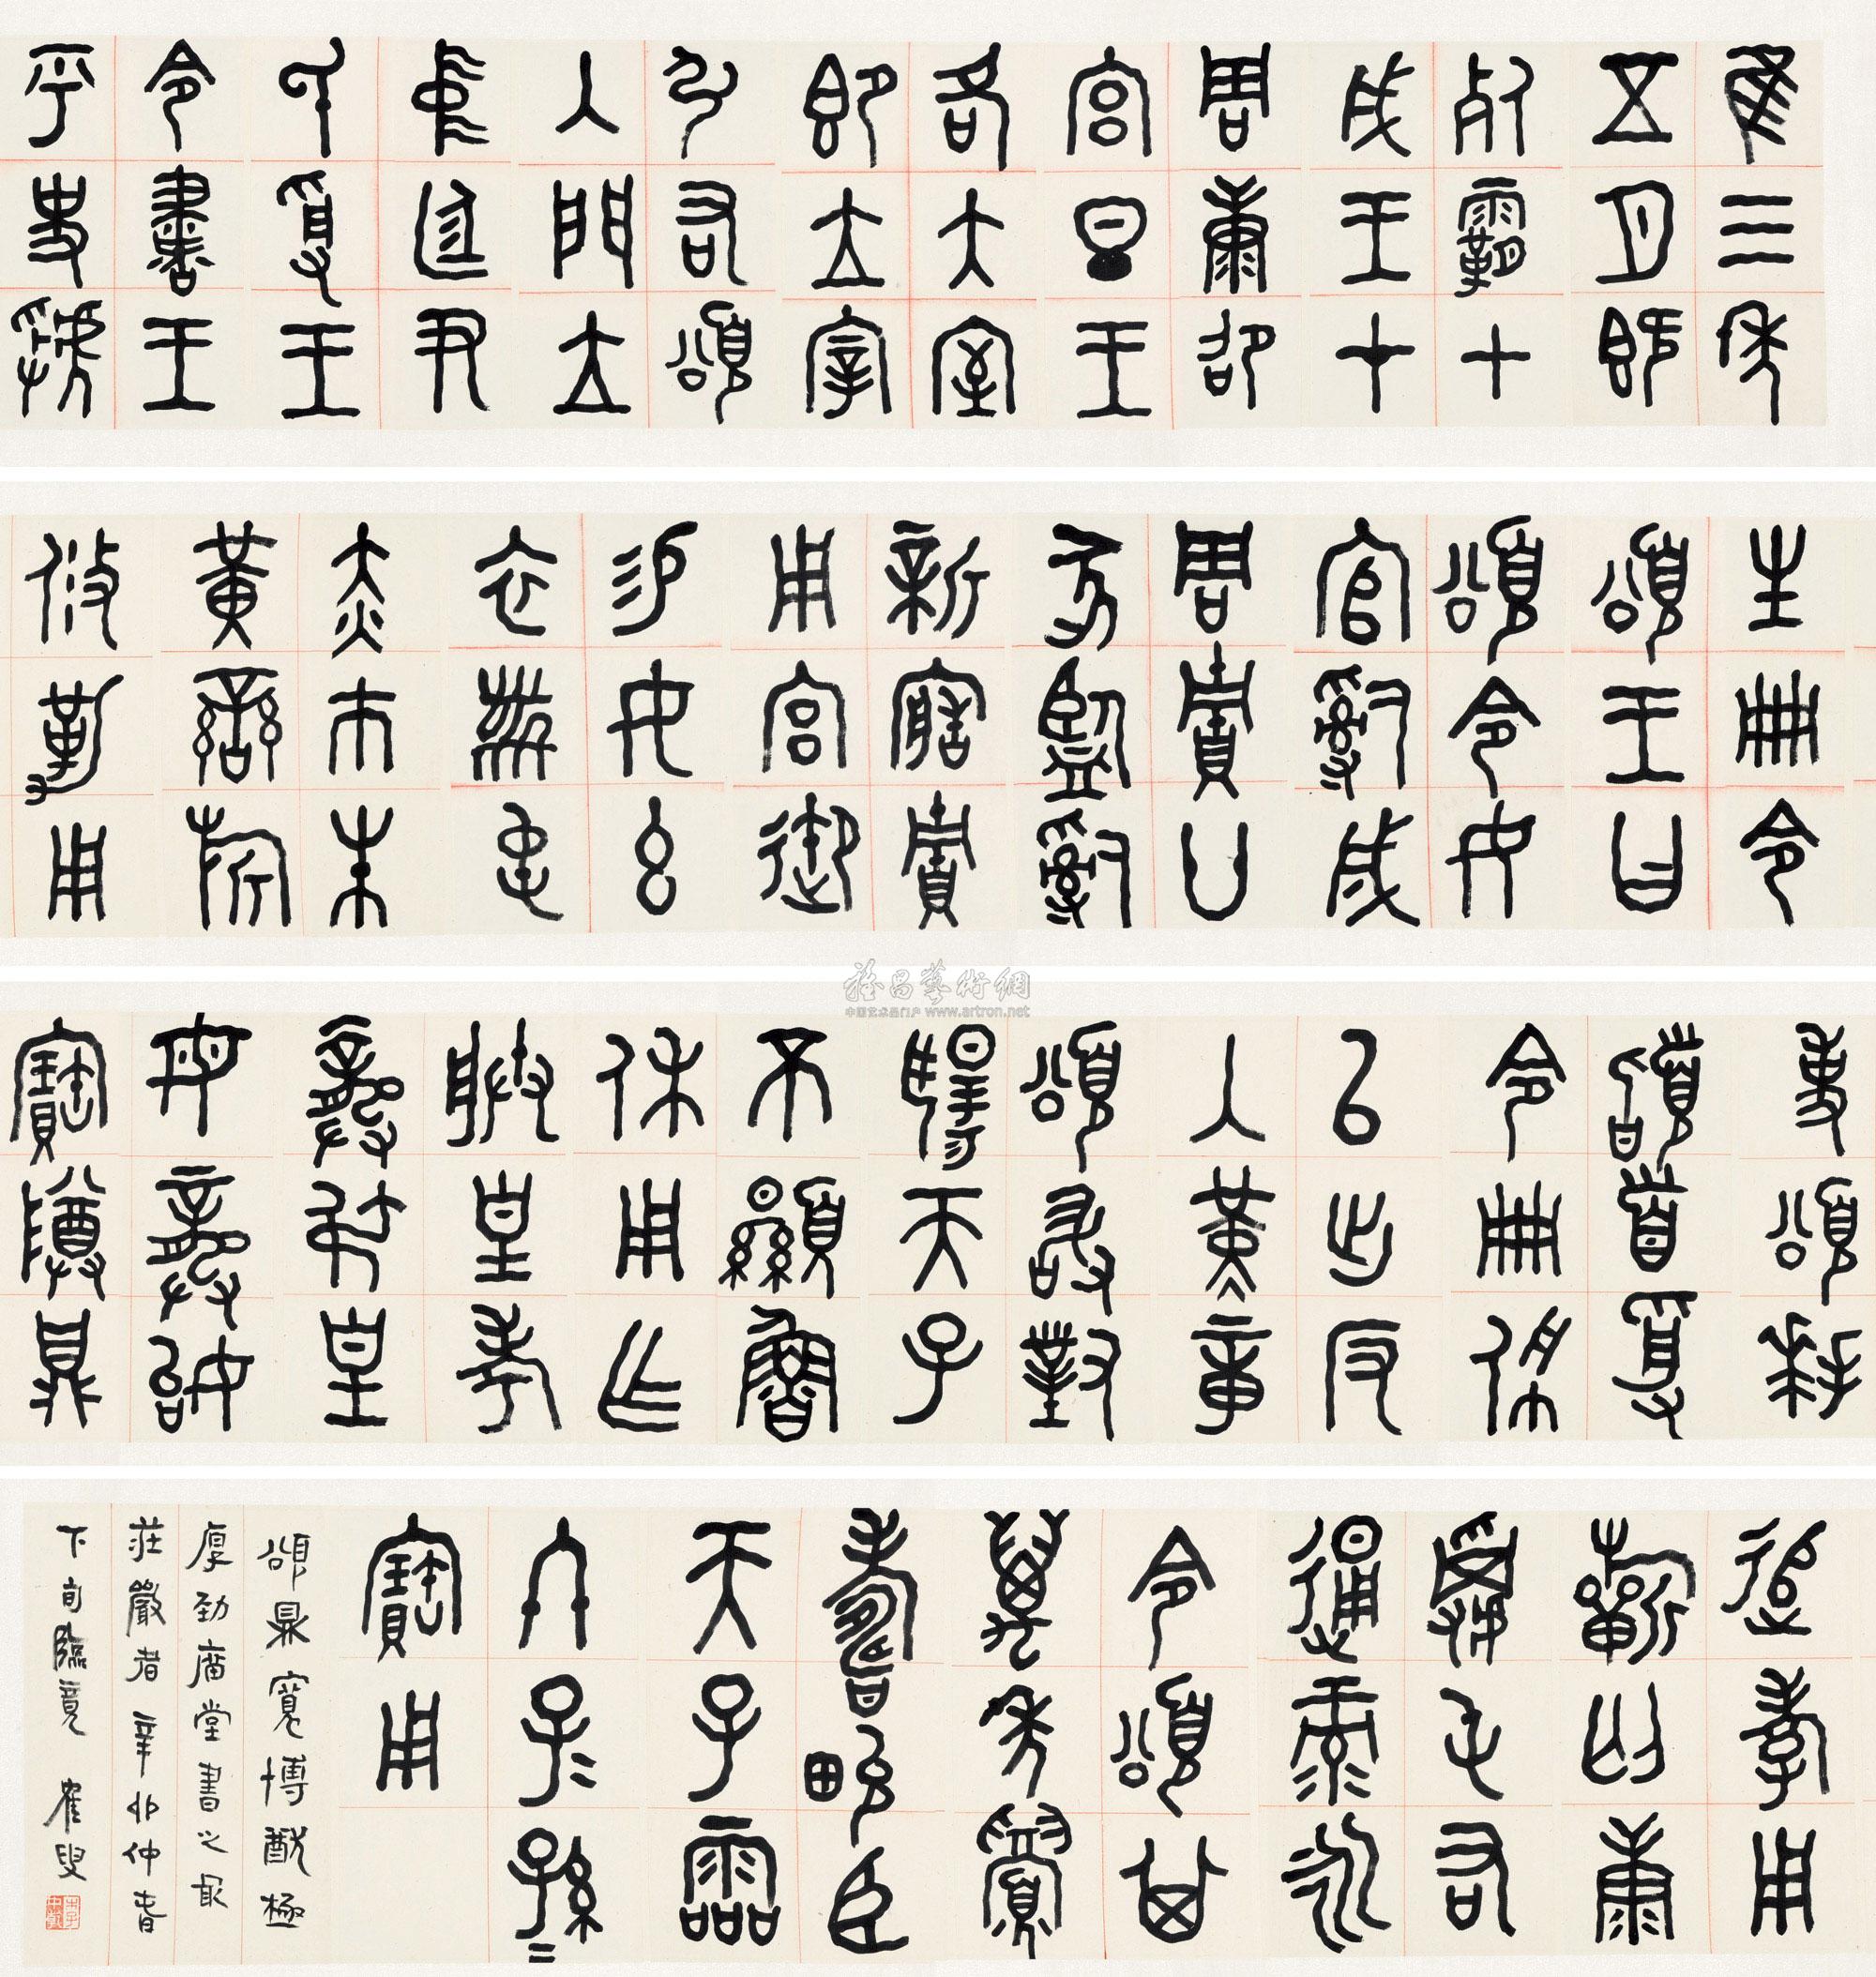 隹三年
五月既
死霸甲
戌王才
周康卲
宮旦王
各大室
即立宰
弘右頌
入門立
中廷尹
氏受王
令書王
乎史虢
生冊令
頌王曰
頌令女
官𤔲成
周貯廿
家監𤔲
新造貯
用宮御
易女玄
衣黹屯
赤巿朱
黃䜌旂
攸勒用
事頌拜
𩒨首受
令冊佩
以出反
入堇章
頌敢對
揚天子
不顯魯
休用乍
朕皇考
龏弔皇
母龏姒
寶尊鼎
追孝用
祈匄康
屯右
通彔永
令頌其
萬年眉
壽畯臣
天子霝
冬子=孫=
寶用
頌鼎寬博極
厚勁廟堂書之最
莊嚴者 辛卯仲春
下旬臨竟 隺叟
雅昌藝術網
中国艺术品门户 www.artron.net